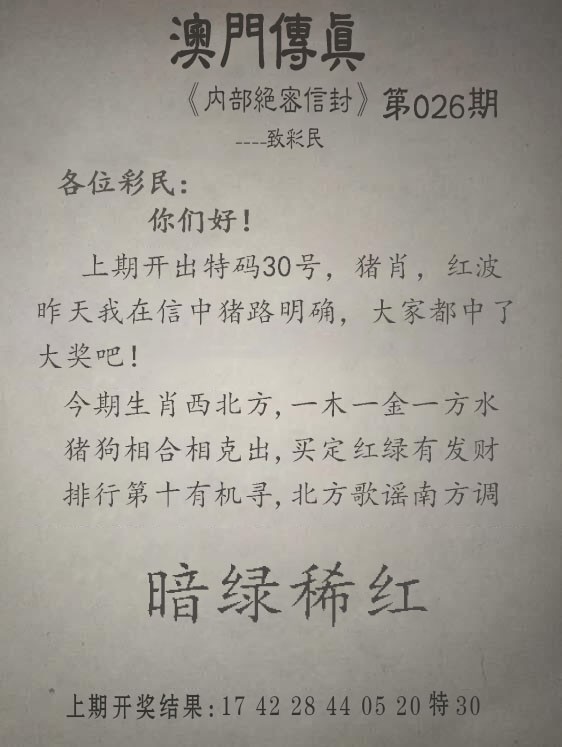 澳門傳真
《内部絕密信封》第026期
----致彩民
各位彩民：
你们好！
上期开出特码30号，猪肖，红波
昨天我在信中猪路明确，大家都中了
大奖吧！
今期生肖西北方,一木一金一方水
猪狗相合相克出,买定红绿有发财
排行第十有机寻,北方歌谣南方调
暗绿稀红
上期开奖结果:17 42 28 44 05 20 特30